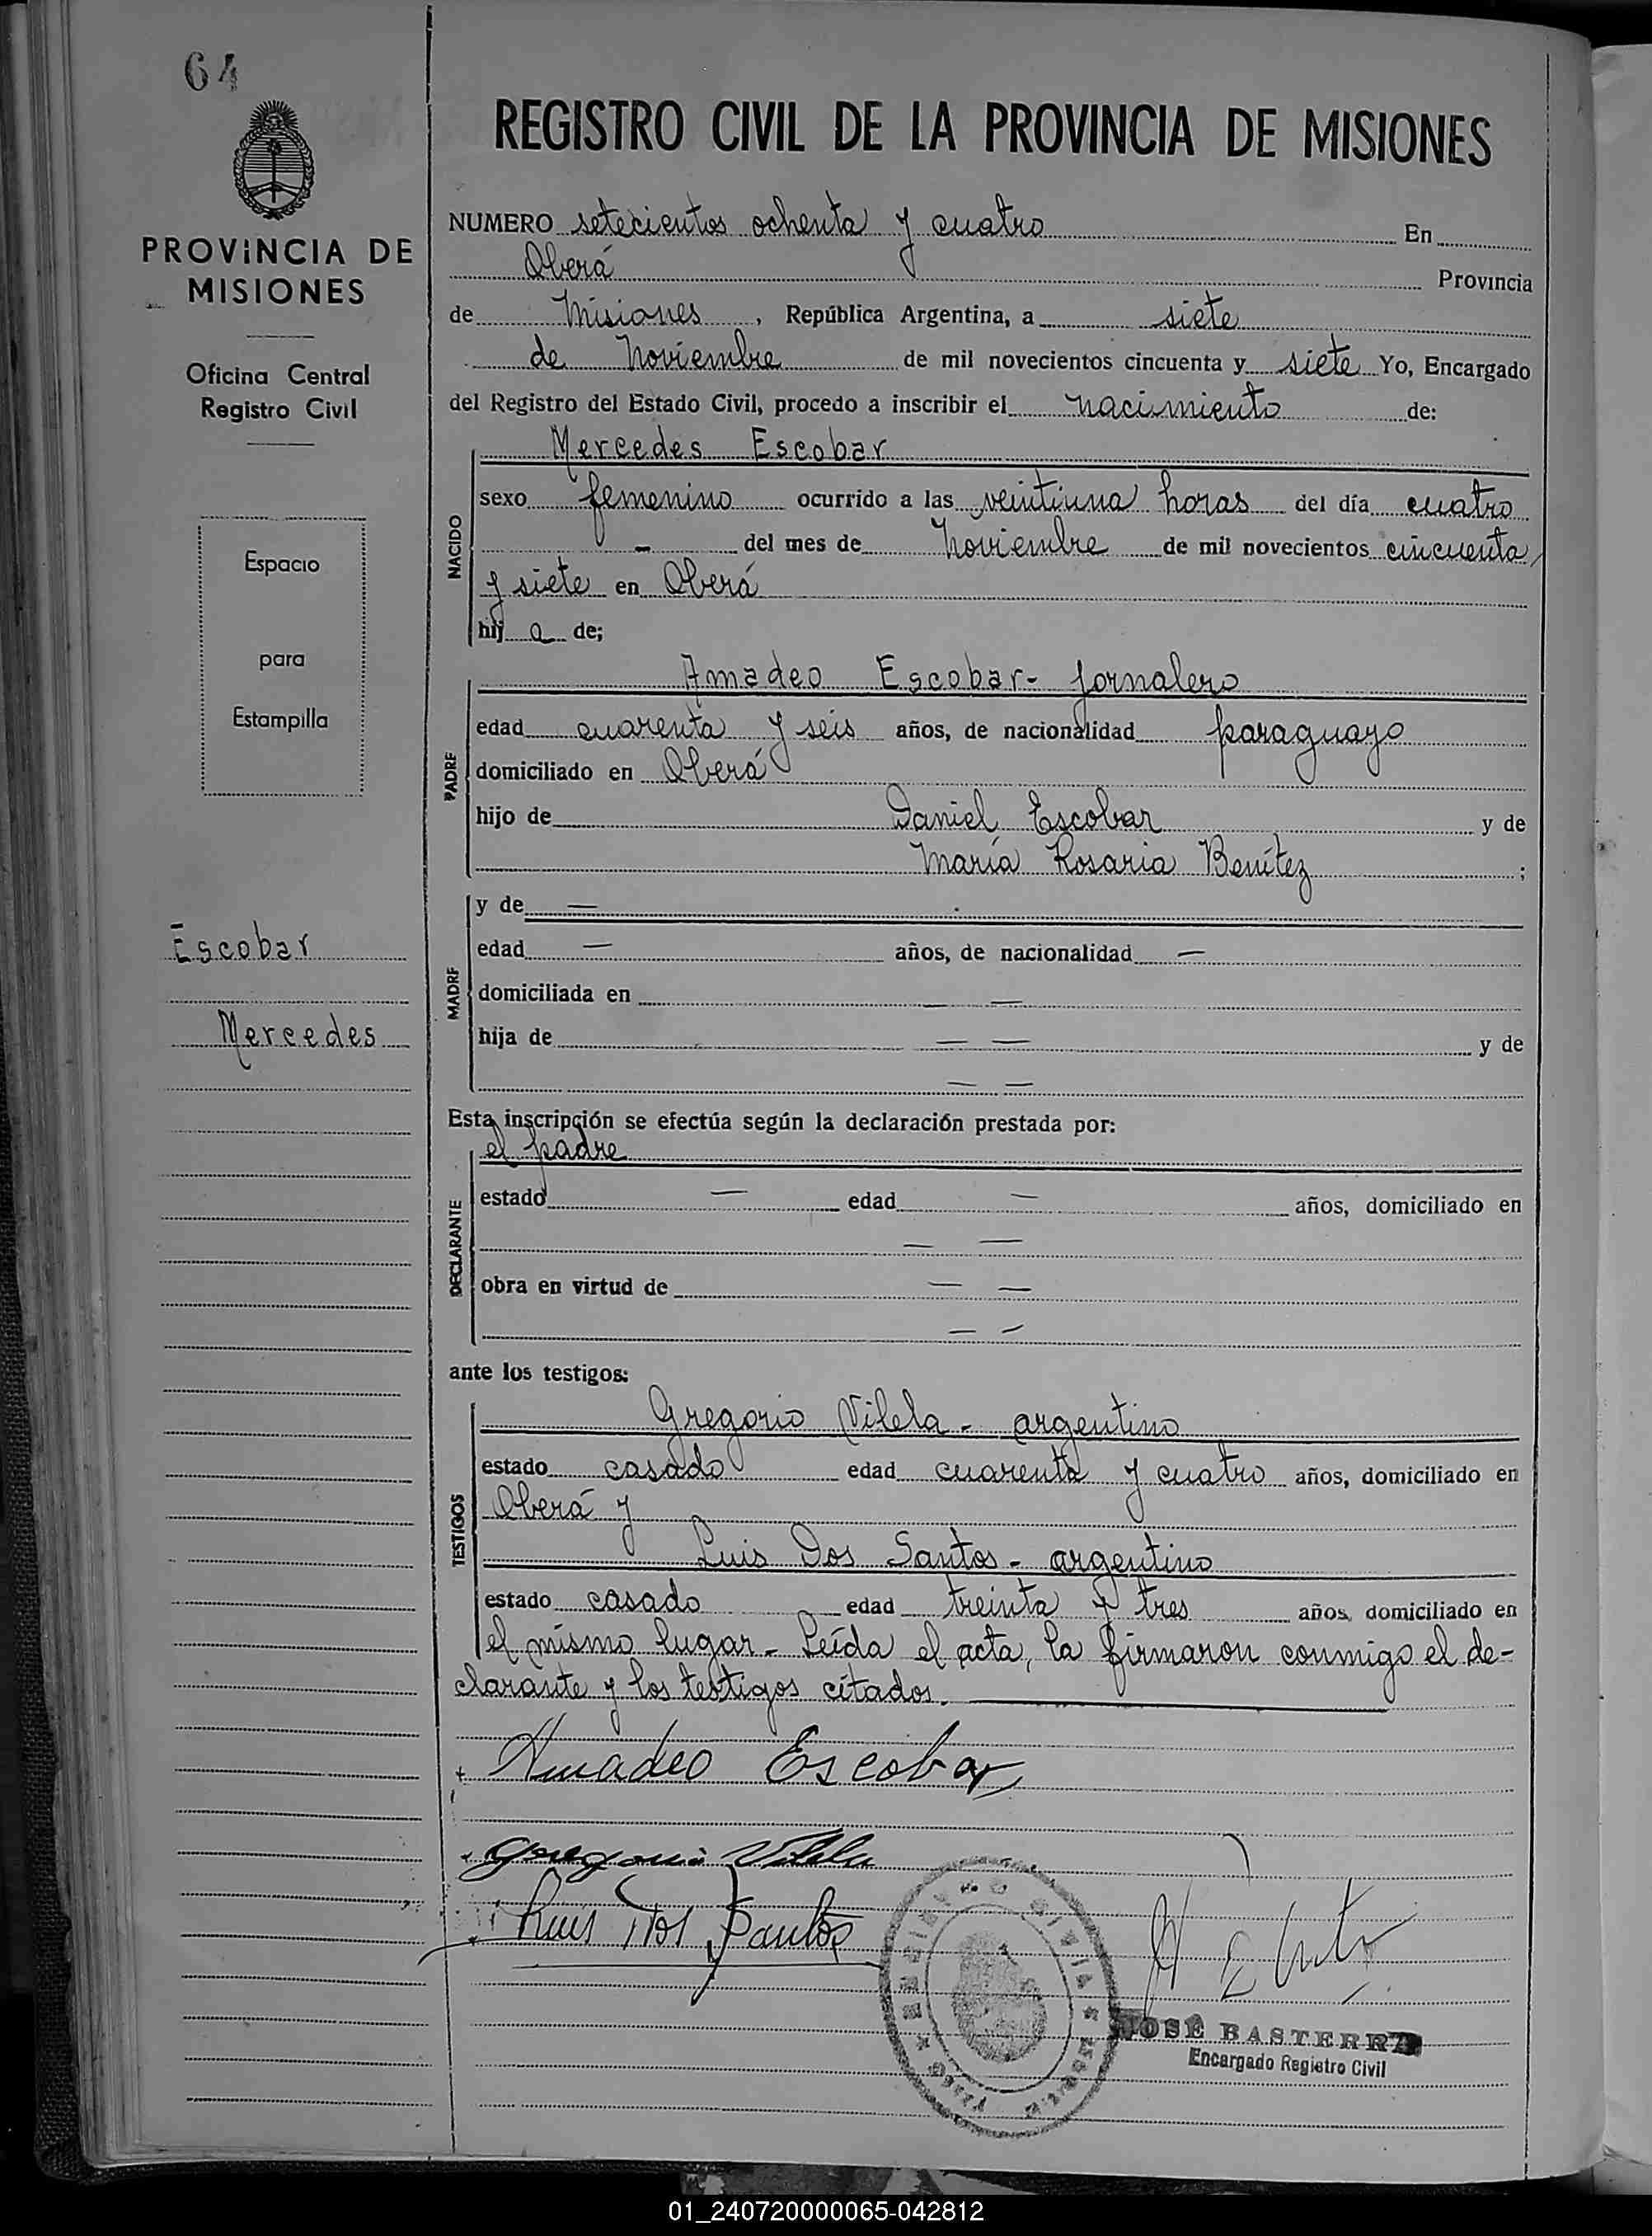 64
PROVINCIA DE
MISIONES
Oficina Central
Registro Civil
Espacio
para
Estampilla
Escobar
Mercedes
REGISTRO CIVIL DE LA PROVINCIA DE MISIONES
NUMERO setecientos ochenta y cuatro En
Oberá Provincia
de Misiones, República Argentina, a siete
de Noviembre de mil novecientos cincuenta y siete Yo, Encargado
del Registro del Estado Civil, procedo a inscribir el nacimiento de:
Mercedes Escobar
NACIDO
sexo femenino ocurrido a las veintiuna horas del día cuatro
- del mes de Noviembre de mil novecientos cincuenta
y siete en Oberá
hij a de;
Amadeo Escobar - jornalero
PADRE
edad cuarenta y seis años, de nacionalidad paraguayo
domiciliado en Oberá
hijo de Daniel Escobar y de
María Rosaria Benítez ;
MADRE
y de —
edad — años, de nacionalidad —
domiciliada en — —
hija de — — y de
— —
Esta inscripción se efectúa según la declaración prestada por:
el padre
DECLARANTE
estado — edad — años, domiciliado en
— —
obra en virtud de — —
— —
ante los testigos:
TESTIGOS
Gregorio Vilela - argentino
estado casado edad cuarenta y cuatro años, domiciliado en
Oberá y
Luis Dos Santos - argentino
estado casado edad treinta y tres años, domiciliado en
el mismo lugar - Leída el acta, la firmaron conmigo el de-
clarante y los testigos citados.
Amadeo Escobar
Gregorio Vilela
Luis Dos Santos
JOSÉ BASTERRA
Encargado Registro Civil
01_240720000065-042812